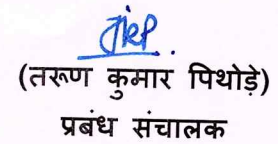 (तरूण कुमार पिथोड़े)
प्रबंध संचालक